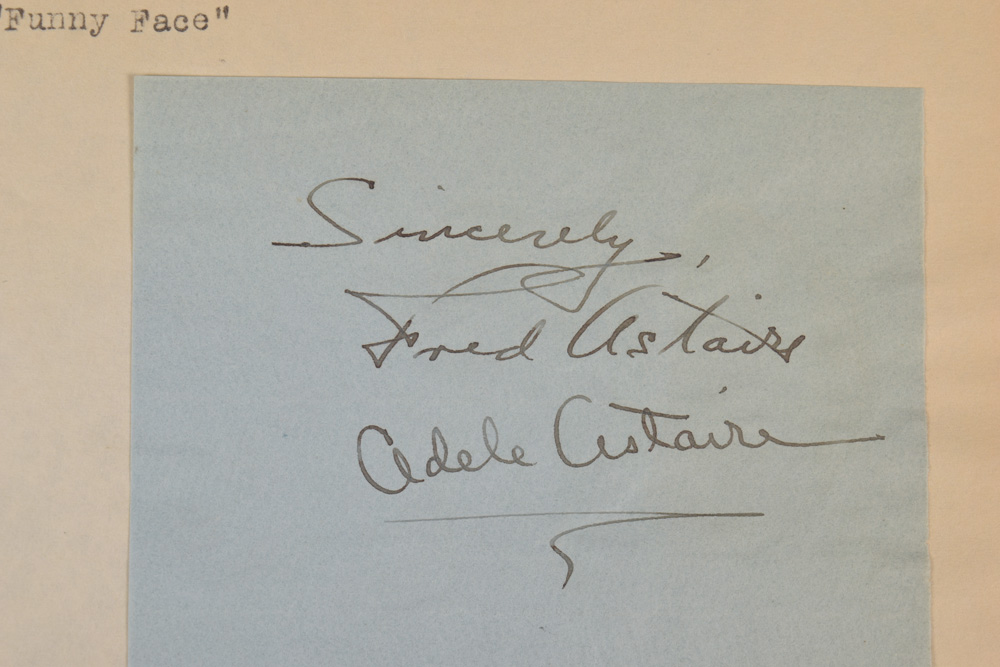 "Funny Face"
Sincerely,
Fred Astaire
Adele Astaire